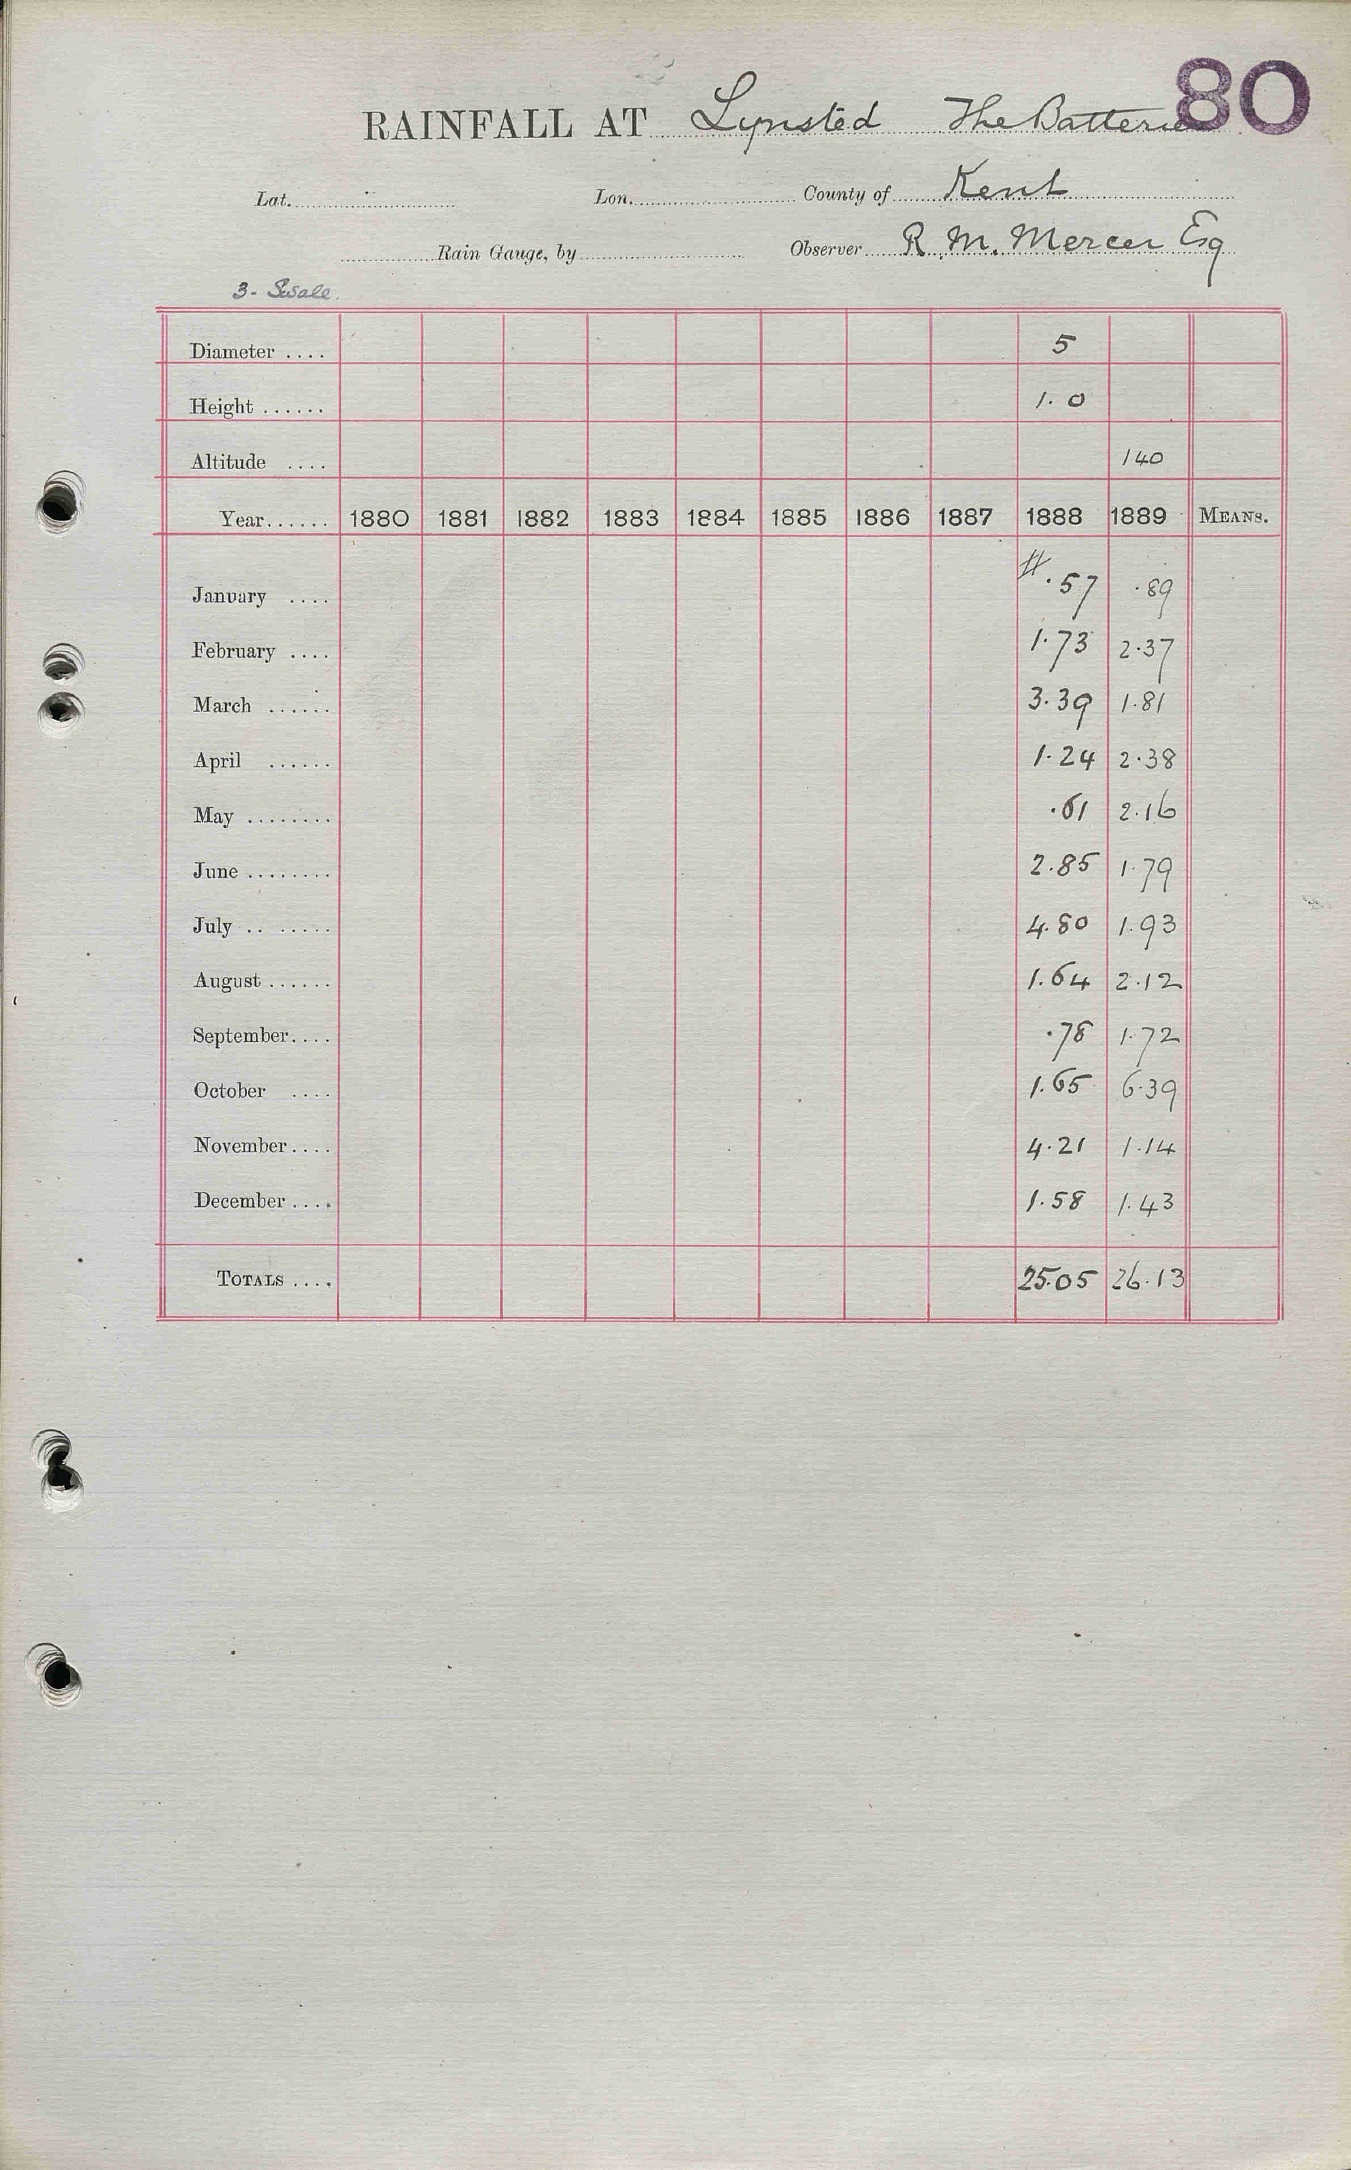 80
RAINFALL AT Lynsted The Batteries
Lat. Lon. County of Kent
Rain Gauge, by Observer R. M. Mercer Esq
3 - Swale.
Diameter .... 5
Height ...... 1.0
Altitude .... 140
Year...... 1880 1881 1882 1883 1884 1885 1886 1887 1888 1889 MEANS.
January .... # .57 .89
February .... 1.73 2.37
March ...... 3.39 1.81
April ...... 1.24 2.38
May ........ .61 2.16
June ........ 2.85 1.79
July .. ..... 4.80 1.93
August ...... 1.64 2.12
September.... .78 1.72
October .... 1.65 6.39
November.... 4.21 1.14
December .... 1.58 1.43
TOTALS .... 25.05 26.13